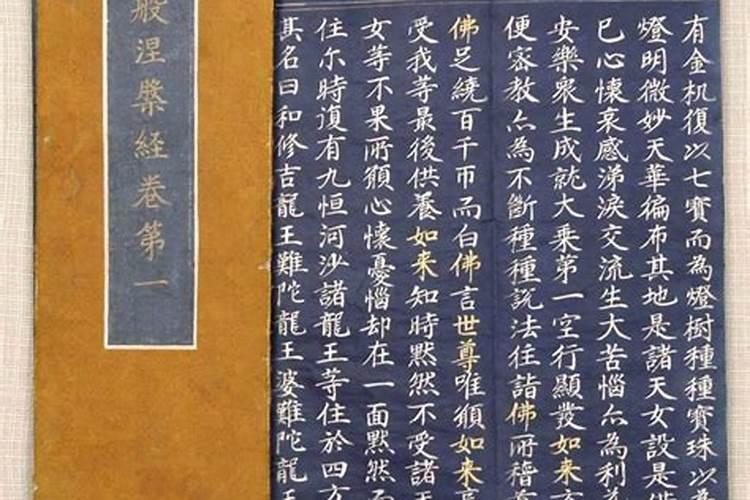 有金机復以七寶而為燈樹種種寶珠以
燈明微妙天華徧布其地是諸天女設是
已心懷哀感涕淚交流生大苦惱亦為利
安樂衆生成就大乘第一空行顯發如来
便密教亦為不斷種種説法往詣佛所稽
佛足繞百千帀而白佛言世尊唯願如来
受我等最後供養如来知時黙然不受諸天
女等不果所願心懷憂惱却在一面黙然而
住尔時復有九恒河沙諸龍王等住於四方
其名曰和修吉龍王難陀龍王婆難陀龍王
般涅槃経卷第一